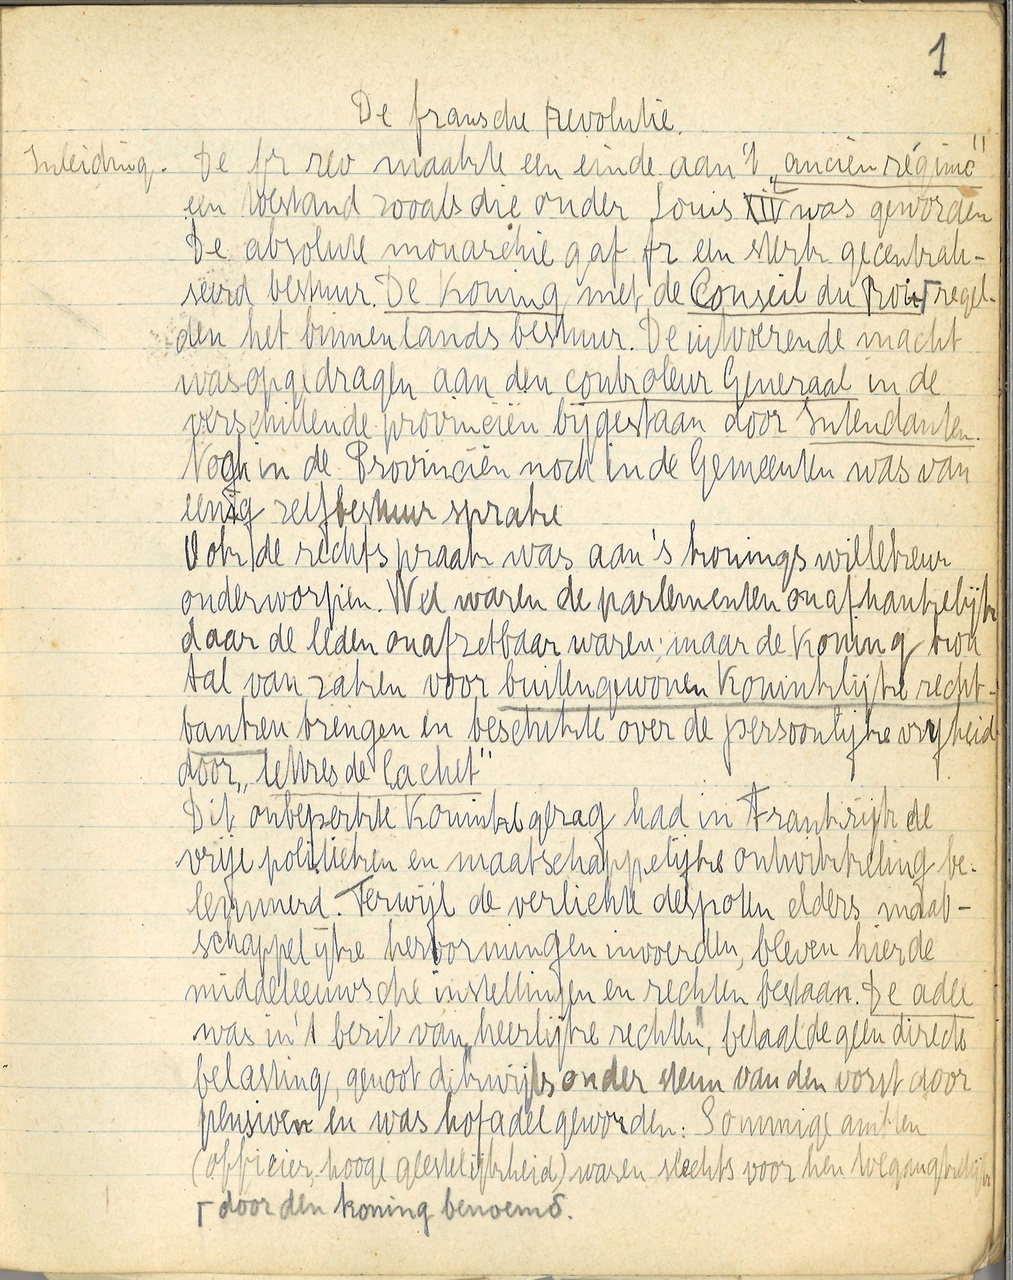 1
De fransche revolutie.
Inleiding. De fr rev maakte een einde aan 't „ancien régime"
een toestand zooals die onder Louis XIV was geworden
De absolute monarchie gaf fr een sterk gecentrali-
seerd bestuur. De Koning met de Conseil du Roi ┌ regel-
den het binnenlands bestuur. De uitvoerende macht
was opgedragen aan den controleur Generaal in de
verschillende provinciën bijgestaan door Intendanten.
Noch in de Provinciën noch in de Gemeenten was van
eenig zelfbestuur sprake
Ook de rechtspraak was aan 's konings willekeur
onderworpen. Wel waren de parlementen onafhankelijk
daar de leden onafzetbaar waren, maar de Koning kon
tal van zaken voor buitengewonen Koninklijke recht-
banken brengen en beschikte over de persoonlijke vrijheid
door „lettres de Cachet"
Dit onbeperkte Koninksgezag had in Frankrijk de
vrije politieken en maatschappelijke ontwikkeling be-
lemmerd. Terwijl de verlichte despoten elders maat-
schappelijke hervormingen invoerden, bleven hier de
middeleeuwsche instellingen en rechten bestaan. De adel
was in 't bezit van „heerlijke rechten", betaalde geen directe
belasting, genoot dikwijls onder steun van den vorst door
pensioen en was hofadel geworden. Sommige ambten
(officier, hooge geestelijkheid) waren slechts voor hen toegangkelijk
┌ door den koning benoemd.